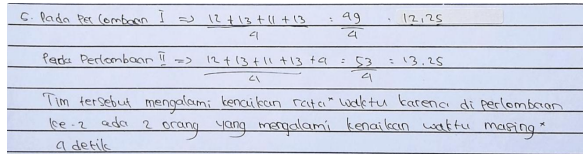 C. Pada Perlombaan I => 12 + 13 + 11 + 13 / 4 = 49 / 4 = 12,25
Pada Perlombaan II => 12 + 13 + 11 + 13 + 4 / 4 = 53 / 4 = 13.25
Tim tersebut mengalami kenaikan rata" waktu karena di perlombaan
ke-2 ada 2 orang yang mengalami kenaikan waktu masing"
4 detik